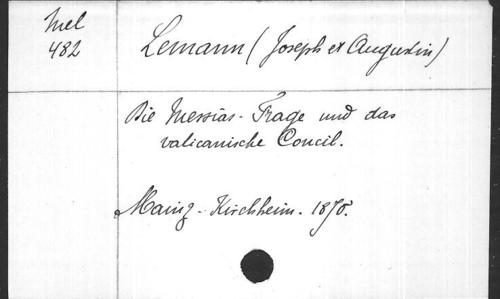 Mel
482
Lemann (Joseph et Augustin)
Die Messias-Frage und das
vaticanische Concil.
Mainz - Kirchheim. 1870.